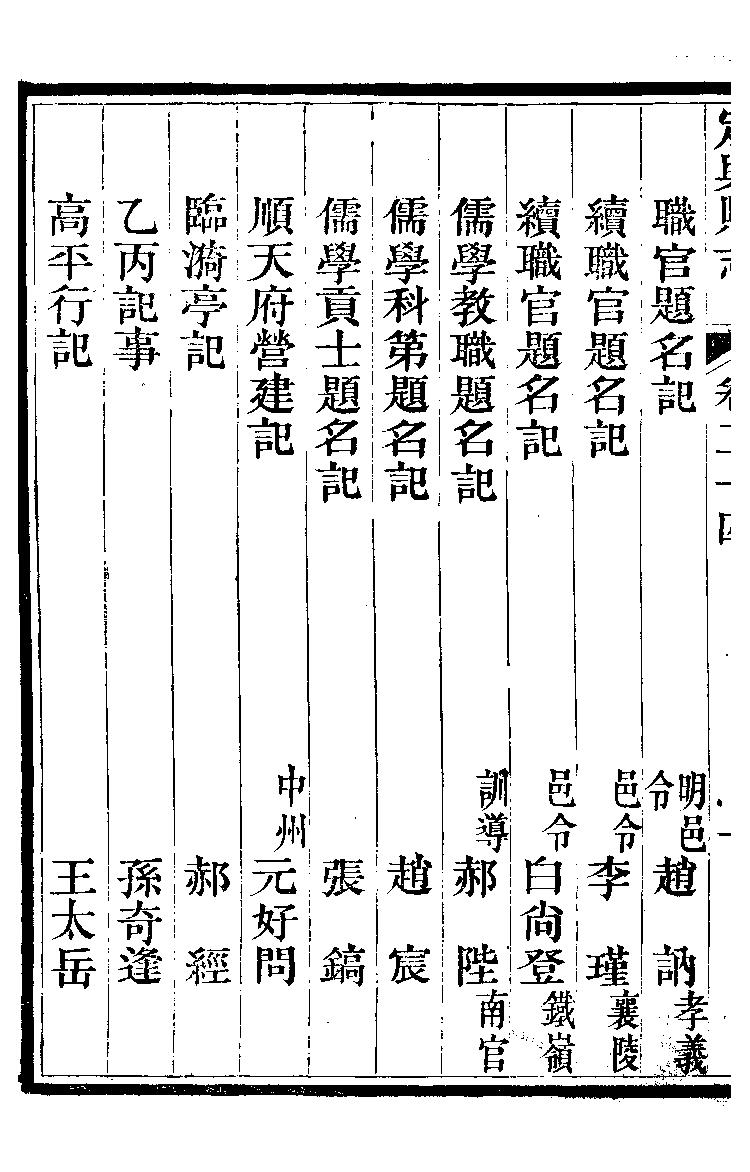 定興縣志 卷二十四
職官題名記 明邑令 趙訥 孝義
續職官題名記 邑令 李瑾 襄陵
續職官題名記 邑令 白尚登 鐵嶺
儒學教職題名記 訓導 郝陛 南官
儒學科第題名記 趙宸
儒學貢士題名記 張鎬
順天府營建記 中州 元好問
臨漪亭記 郝經
乙丙記事 孫奇逢
高平行記 王太岳